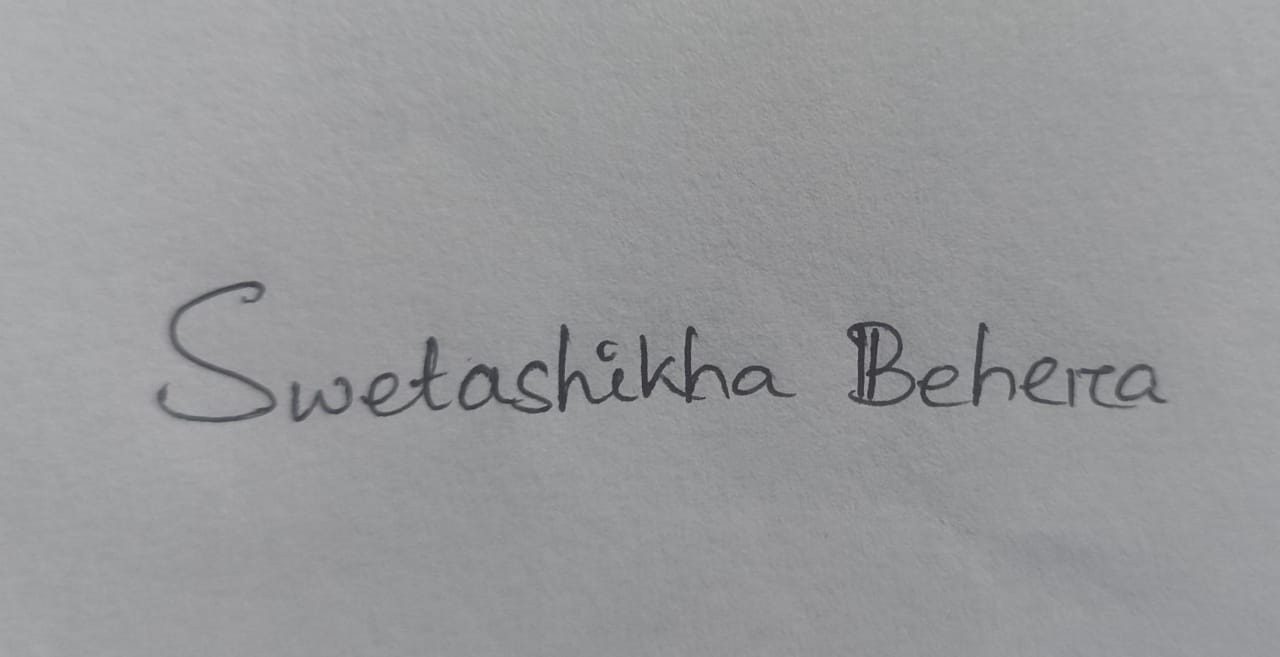 Swetashikha Behera